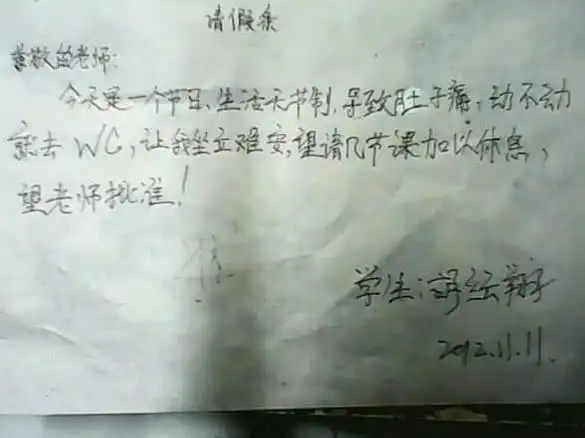 请假条
尊敬的老师:
今天是一个节日、生活无节制,导致肚子痛,动不动
就去WC,让我坐立难安,望请几节课加以休息,
望老师批准!
准
学生:舒
2012.11.11.